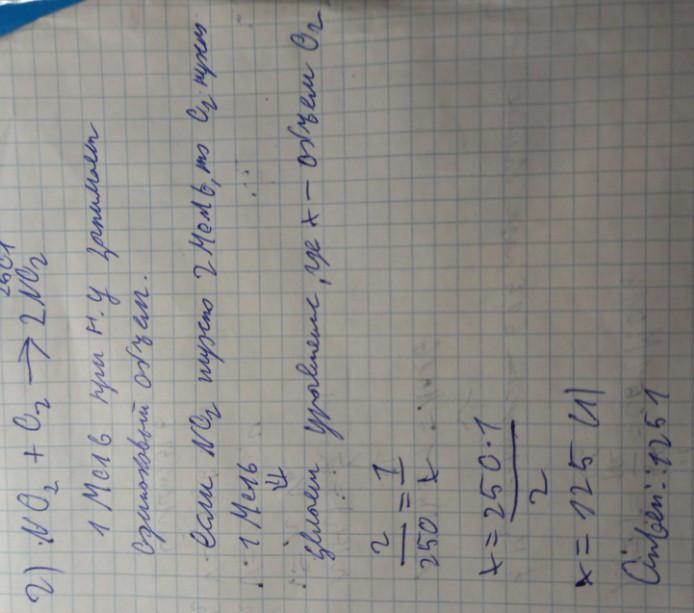 250 л
2) NO₂ + O₂ → 2NO₂
1 Моль при н.у занимает
одинаковый объем.
если NO₂ нужно 2 Моль, то O₂ нужен
1 Моль
⇓
Делаем уравнение, где x – объем O₂
2/250 = 1/x
x = 250·1/2
x = 125 (л)
Ответ: 125 л